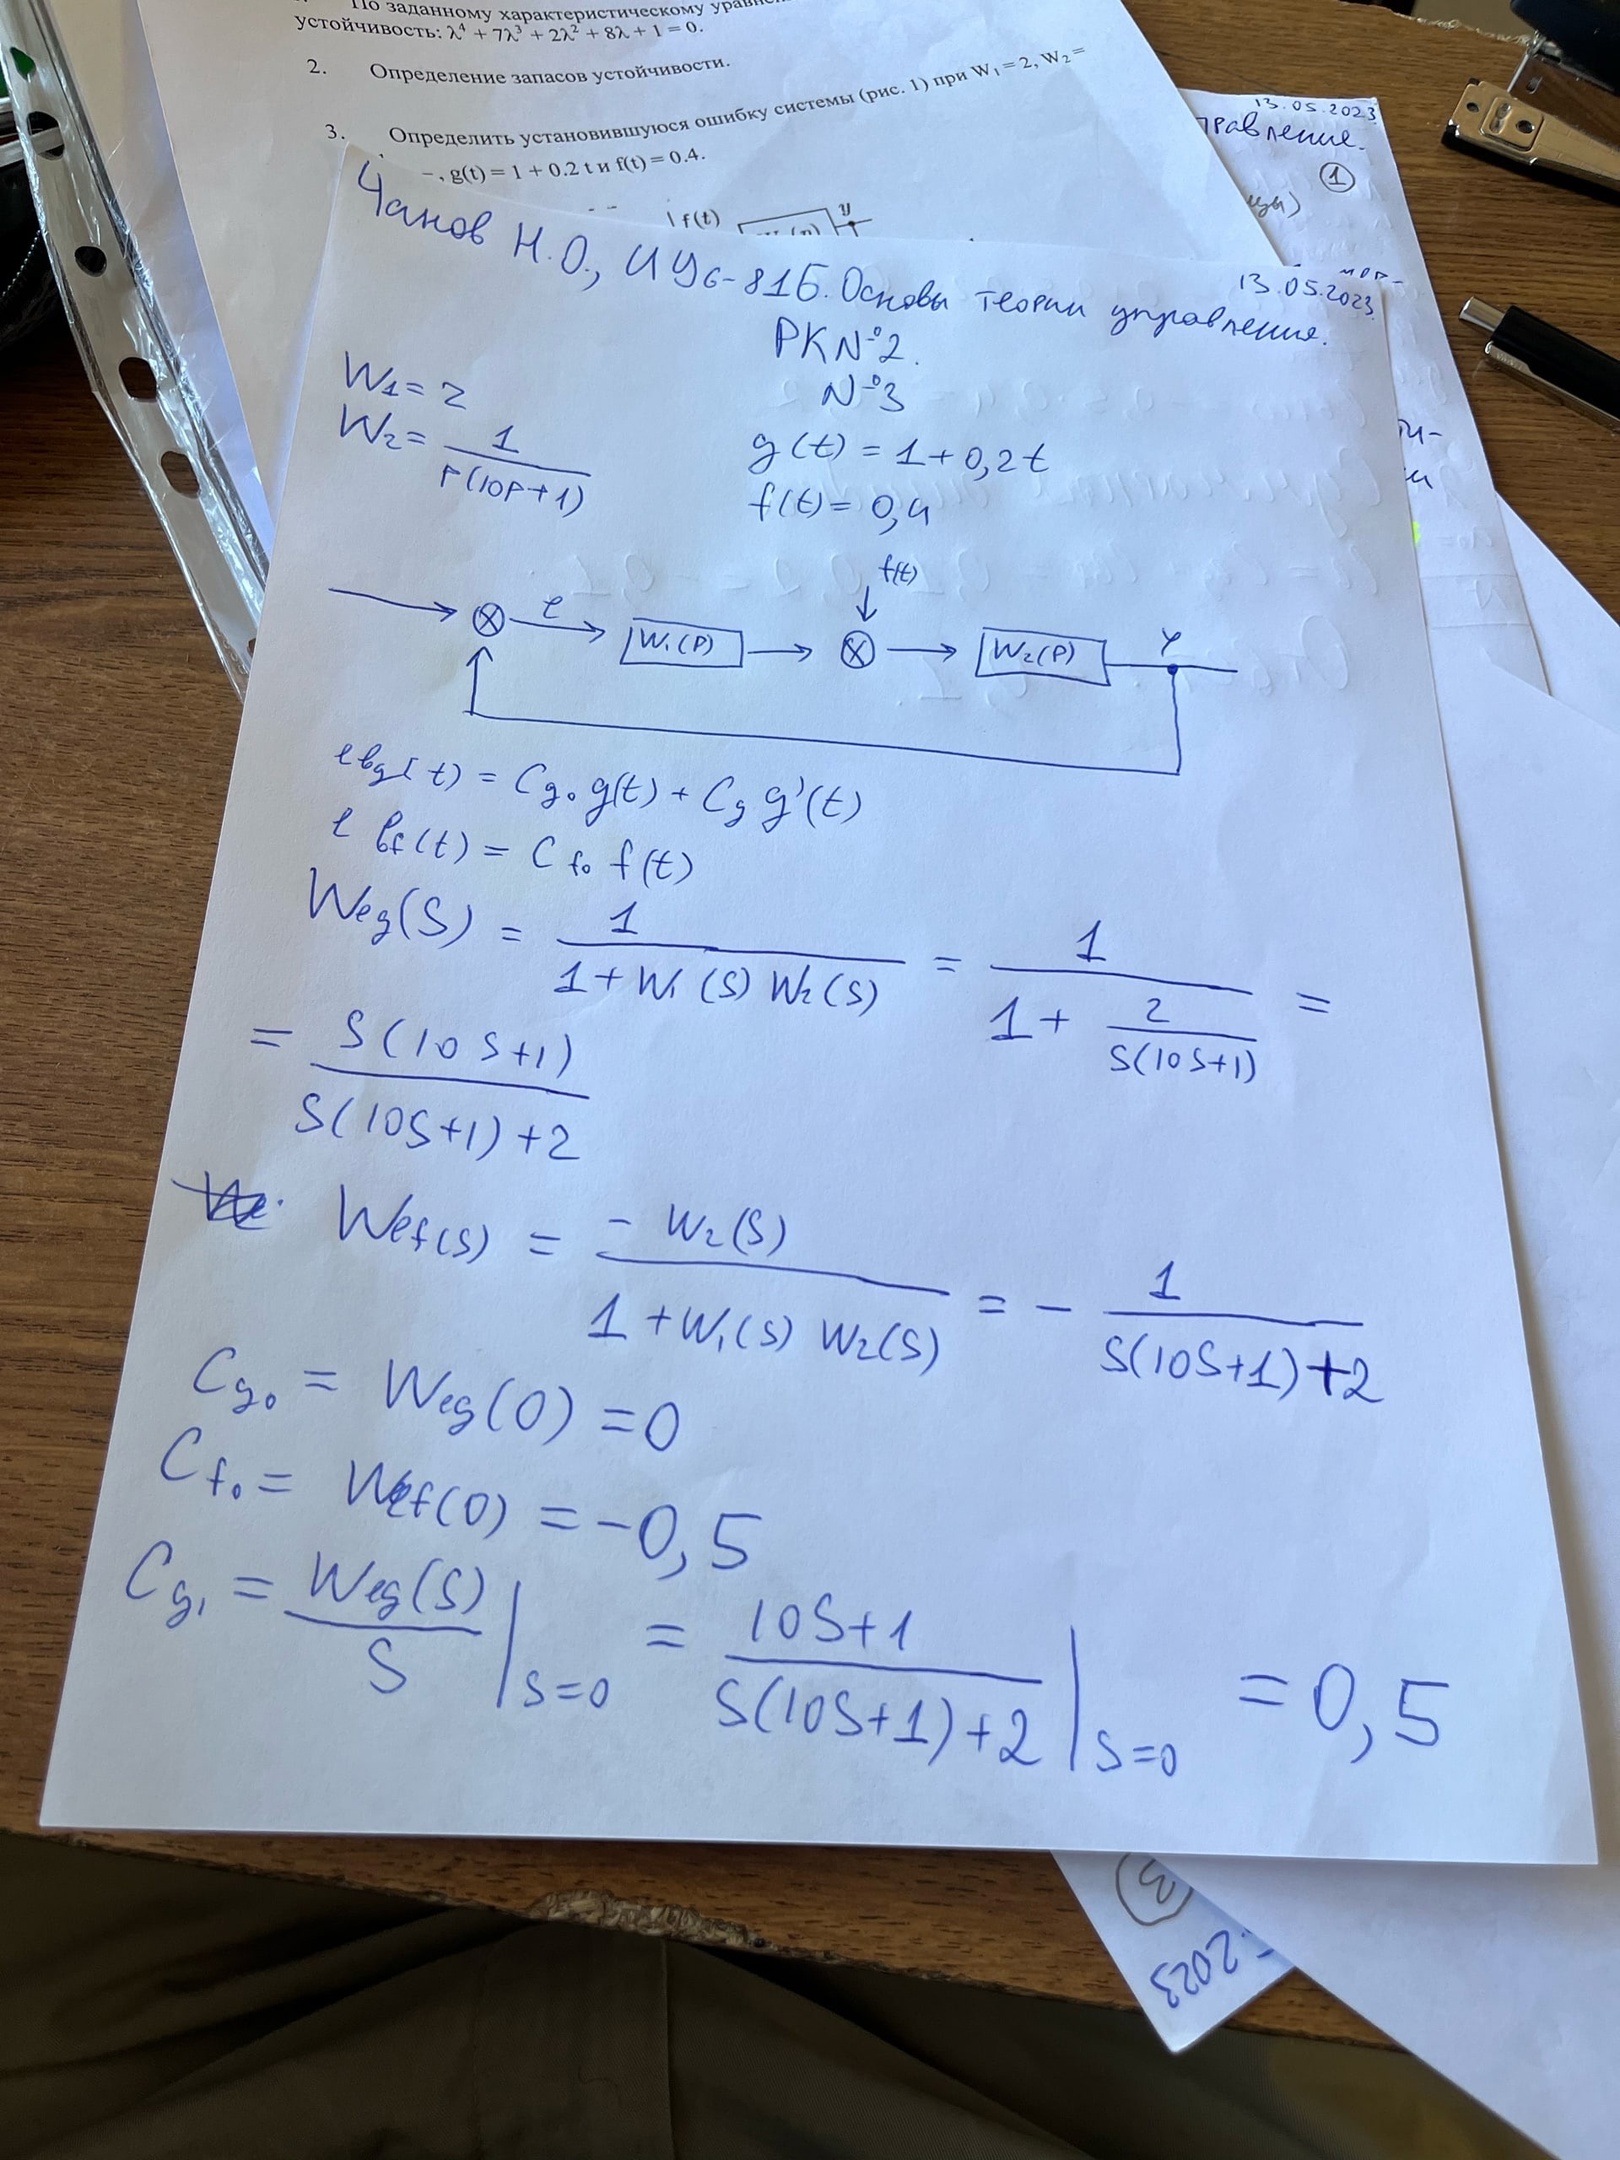 По заданному характеристическому
устойчивость: λ⁴ + 7λ³ + 2λ² + 8λ + 1 = 0.
2. Определение запасов устойчивости.
3. Определить установившуюся ошибку системы (рис. 1) при W₁ = 2, W₂ =
, g(t) = 1 + 0.2 t и f(t) = 0.4.
f(t)
y
13.05.2023
①
Чанов Н.О., ИУ6-81Б. Основы теории управления.
13.05.2023
РК№2.
№3
W₁ = 2
W₂ = 1/(P(10P+1))
g(t) = 1+0,2t
f(t) = 0,4
f(t)
e
W₁(P)
W₂(P)
Y
e вg(t) = Cg₀ g(t) + Cg g'(t)
e вf(t) = Cf₀ f(t)
Weg(S) = 1/(1+W₁(S) W₂(S)) = 1/(1+ 2/(S(10S+1))) =
= S(10S+1)/(S(10S+1)+2)
Wef(S) = -W₂(S)/(1+W₁(S) W₂(S)) = - 1/(S(10S+1)+2)
Cg₀ = Weg(0) = 0
Cf₀ = Wef(0) = -0,5
Cg₁ = Weg(S)/S |S=0 = (10S+1)/(S(10S+1)+2) |S=0 = 0,5
③
2023